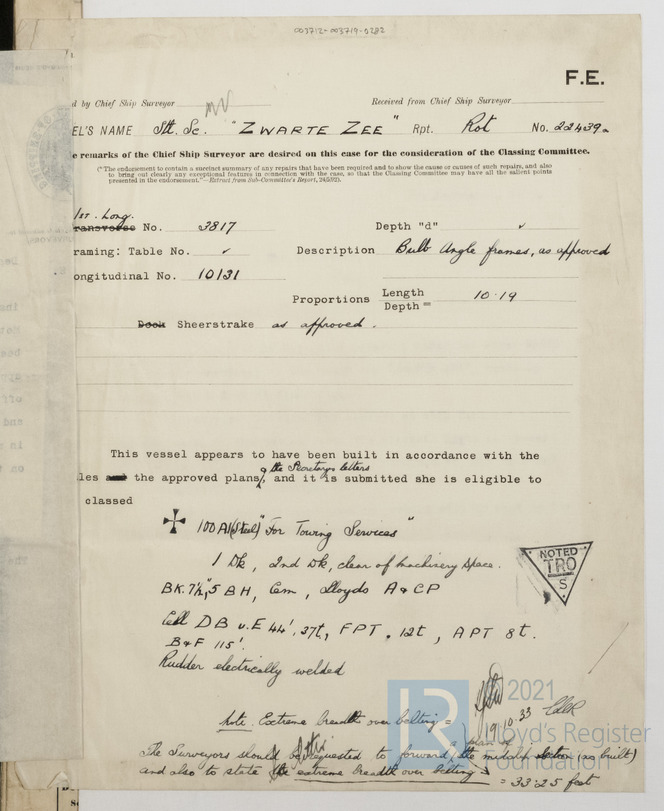 003712-003719-0282
F.E.
d by Chief Ship Surveyor
Received from Chief Ship Surveyor
EL'S NAME Stl. Sc. "ZWARTE ZEE" Rpt. Rot No. 22439a
e remarks of the Chief Ship Surveyor are desired on this case for the consideration of the Classing Committee.
(*The endorsement to contain a succinct summary of any repairs that have been required and to show the cause or causes of such repairs, and also
to bring out clearly any exceptional features in connection with the case, so that the Classing Committee may have all the salient points
presented in the endorsement."—Extract from Sub-Committee's Report, 24/5/92).
1st. Long.
ransverse No. 3817 Depth "d" ✓
raming: Table No. ✓ Description Bulb Angle frames, as approved
ongitudinal No. 10131
Proportions Length
Depth = 10.19
Deck Sheerstrake as approved.
This vessel appears to have been built in accordance with the
& the Secretary's letters
les and the approved plans, and it is submitted she is eligible to
classed
100 A1 (Steel) "For Towing Services"
1 Dk, 2nd Dk, clear of machinery space.
BK. 7½", 5 BH, Cem, Lloyds A & CP
Cell DB u.E 44', 37t, FPT. 12t, APT 8t.
B&F 115'.
Rudder electrically welded
NOTED
TRO
S.
19.10.33
Note. Extreme breadth over belting =
The Surveyors should be requested to forward the midship section (as built)
and also to state the extreme breadth over belting = 33.25 feet
LR
© 2021
Lloyd's Register
Foundation